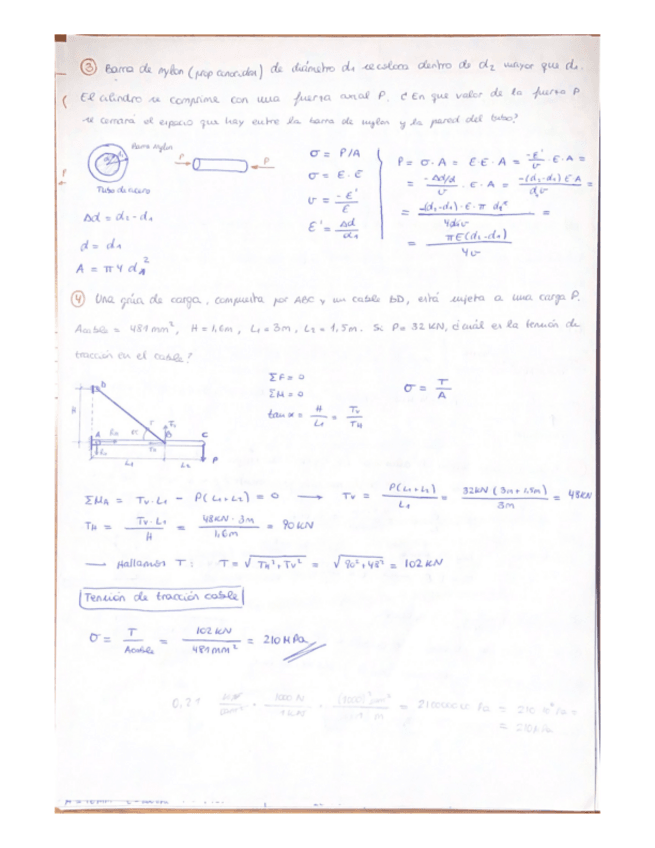 ③ Barra de nylon (prop conocidas) de diámetro d₁ se coloca dentro de d₂ mayor que d₁.
El cilindro se comprime con una fuerza axial P. ¿En que valor de la fuerza P
se cerrará el espacio que hay entre la barra de nylon y la pared del tubo?
Barra nylon
Tubo de acero
P
P
Δd = d₂ - d₁
d = d₁
A = π4 d₁²
σ = P/A
σ = E·ε
ν = -ε'/ε
ε' = Δd/d₁
P = σ·A = E·ε·A = -ε'/ν · E·A =
= -Δd/d/ν · E·A = -(d₂-d₁) E A/d₁ν =
= -(d₂-d₁)·E·π d₁²/4d₁ν =
= πE(d₂-d₁)/4ν
④ Una grúa de carga, compuesta por ABC y un cable BD, está sujeta a una carga P.
Acable = 481 mm², H = 1,6m, L₁ = 3m, L₂ = 1,5m. Si P = 32 KN, ¿cuál es la tensión de
tracción en el cable?
ΣF = 0
ΣM = 0
tan α = H/L₁ = Tv/TH
σ = T/A
D
H
A
B
C
L₁
L₂
P
ΣMA = Tv·L₁ - P(L₁+L₂) = 0 → Tv = P(L₁+L₂)/L₁ = 32KN (3m+1,5m)/3m = 48KN
TH = Tv·L₁/H = 48KN·3m/1,6m = 90KN
→ Hallamos T: T = √TH²+Tv² = √90²+48² = 102 KN
Tensión de tracción cable
σ = T/Acable = 102 KN/481 mm² = 210 MPa